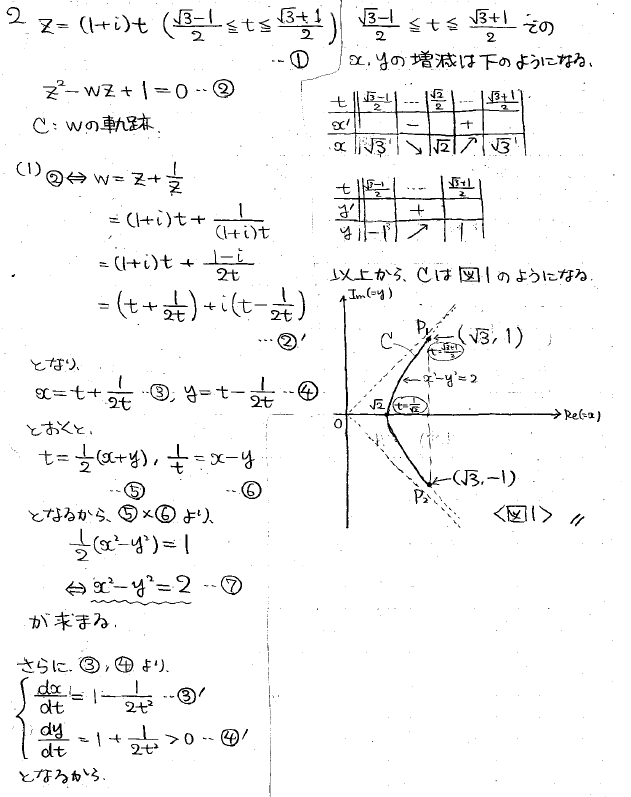 2 z=(1+i)t (√3-1/2 ≦ t ≦ √3+1/2) …①
z²-wz+1=0 …②
C: wの軌跡.
(1) ②⇔ w=z+1/z
=(1+i)t+1/(1+i)t
=(1+i)t+1-i/2t
=(t+1/2t)+i(t-1/2t) …②'
となり、
x=t+1/2t …③, y=t-1/2t …④
とおくと、
t=1/2(x+y), 1/t=x-y
…⑤ …⑥
となるから、⑤×⑥より、
1/2(x²-y²)=1
⇔ x²-y²=2 …⑦
が求まる.
さらに、③,④より、
dx/dt=1-1/2t² …③'
dy/dt=1+1/2t²>0 …④'
となるから、
√3-1/2 ≦ t ≦ √3+1/2 での
x, yの増減は下のようになる.
t √3-1/2 … √2/2 … √3+1/2
x' - +
x √3 ↘ √2 ↗ √3
t √3-1/2 … √3+1/2
y' +
y -1 ↗ 1
以上から、Cは図1のようになる.
Im(=y)
P₁ (√3, 1)
C t=√3+1/2
x²-y²=2
√2 t=1/√2
O Re(=x)
(√3, -1)
P₂
<図1> //